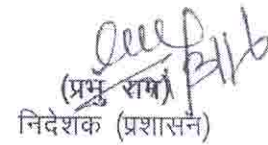 (प्रभु राम)
निदेशक (प्रशासन)